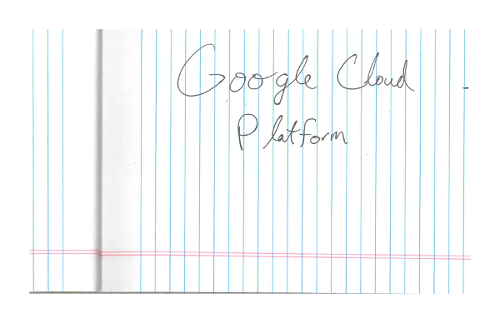 Google Cloud
Platform